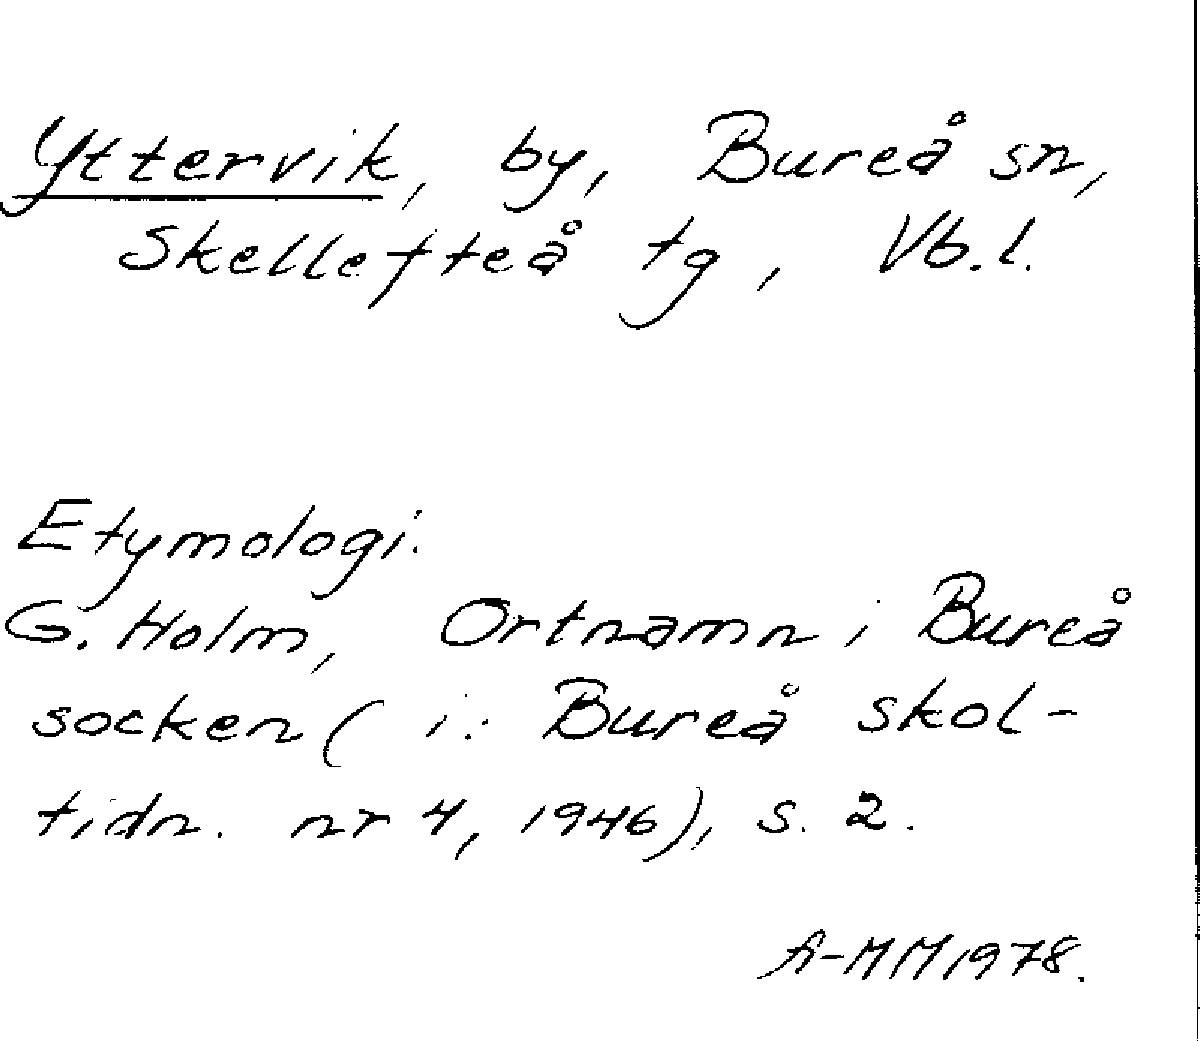 Yttervik, by, Bureå sn,
Skellefteå tg, Vb.l.
Etymologi:
G. Holm, Ortnamn i Bureå
socken (i: Bureå skol-
tidn. nr 4, 1946), s. 2.
A-MM 1978.